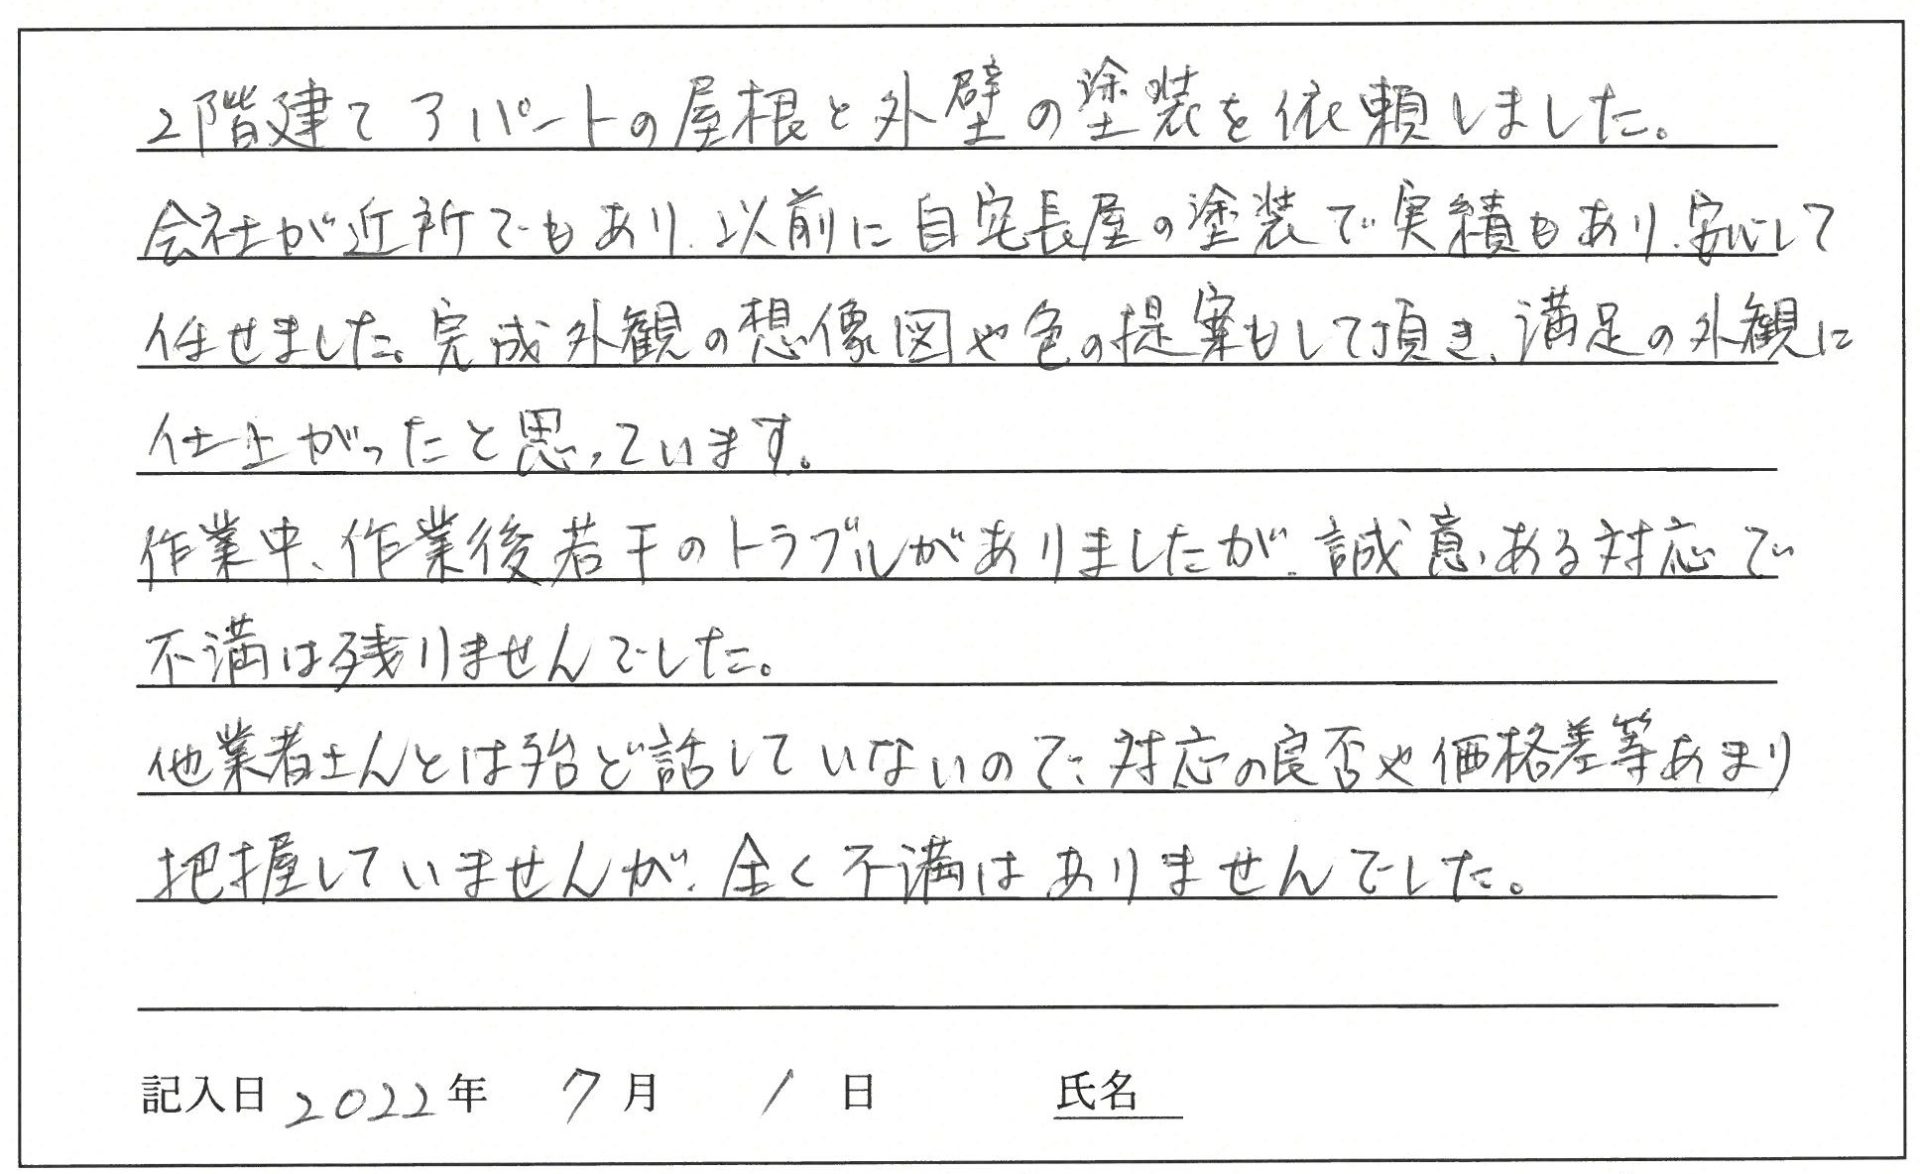 2階建てアパートの屋根と外壁の塗装を依頼しました。
会社が近所でもあり、以前に自宅長屋の塗装で実績もあり、安心して
任せました。完成外観の想像図や色の提案もして頂き、満足の外観に
仕上がったと思っています。
作業中、作業後若干のトラブルがありましたが、誠意ある対応で
不満は残りませんでした。
他業者さんとは殆ど話していないので、対応の良否や価格差等あまり
把握していませんが、全く不満はありませんでした。
記入日 2022年 7月 1日 氏名